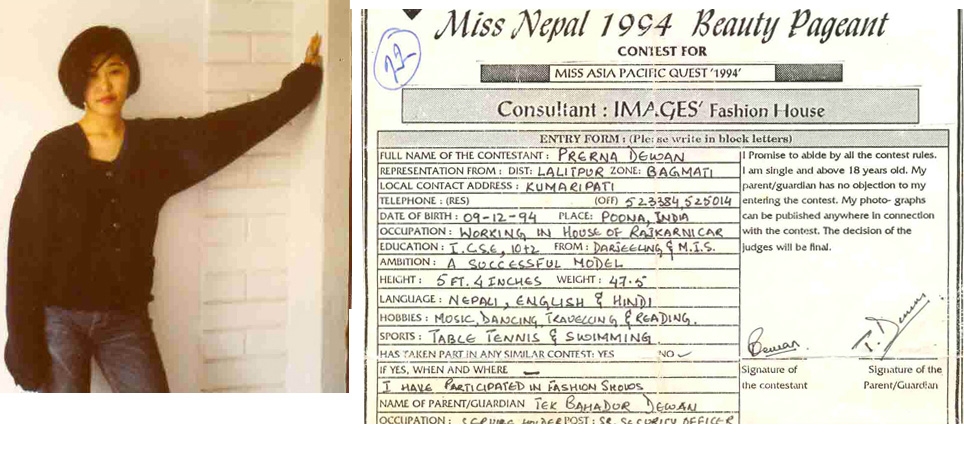 22
Miss Nepal 1994 Beauty Pageant
CONTEST FOR
MISS ASIA PACIFIC QUEST '1994'
Consultant : IMAGES' Fashion House
ENTRY FORM : (Please write in block letters)
FULL NAME OF THE CONTESTANT : PRERNA DEWAN
REPRESENTATION FROM : DIST: LALITPUR ZONE: BAGMATI
LOCAL CONTACT ADDRESS : KUMARIPATI
TELEPHONE : (RES) (OFF) 523384, 525014
DATE OF BIRTH : 09-12-94 PLACE: POONA, INDIA
OCCUPATION : WORKING IN HOUSE OF RAJKARNICAR
EDUCATION : I.C.S.E, 10+2 FROM : DARJEELING, & M.I.S.
AMBITION : A SUCCESSFUL MODEL
HEIGHT : 5 FT. 4 INCHES WEIGHT : 47.5
LANGUAGE : NEPALI, ENGLISH & HINDI
HOBBIES : MUSIC, DANCING, TRAVELLING & READING.
SPORTS : TABLE TENNIS & SWIMMING
HAS TAKEN PART IN ANY SIMILAR CONTEST: YES NO ✓
IF YES, WHEN AND WHERE —
I HAVE PARTICIPATED IN FASHION SHOWS
NAME OF PARENT/GUARDIAN TEK BAHADUR DEWAN
OCCUPATION : SERVICE HOLDER POST : SR. SECURITY OFFICER
I Promise to abide by all the contest rules.
I am single and above 18 years old. My
parent/guardian has no objection to my
entering the contest. My photo- graphs
can be published anywhere in connection
with the contest. The decision of the
judges will be final.
Dewan
P. Dewan
Signature of
the contestant
Signature of the
Parent/Guardian